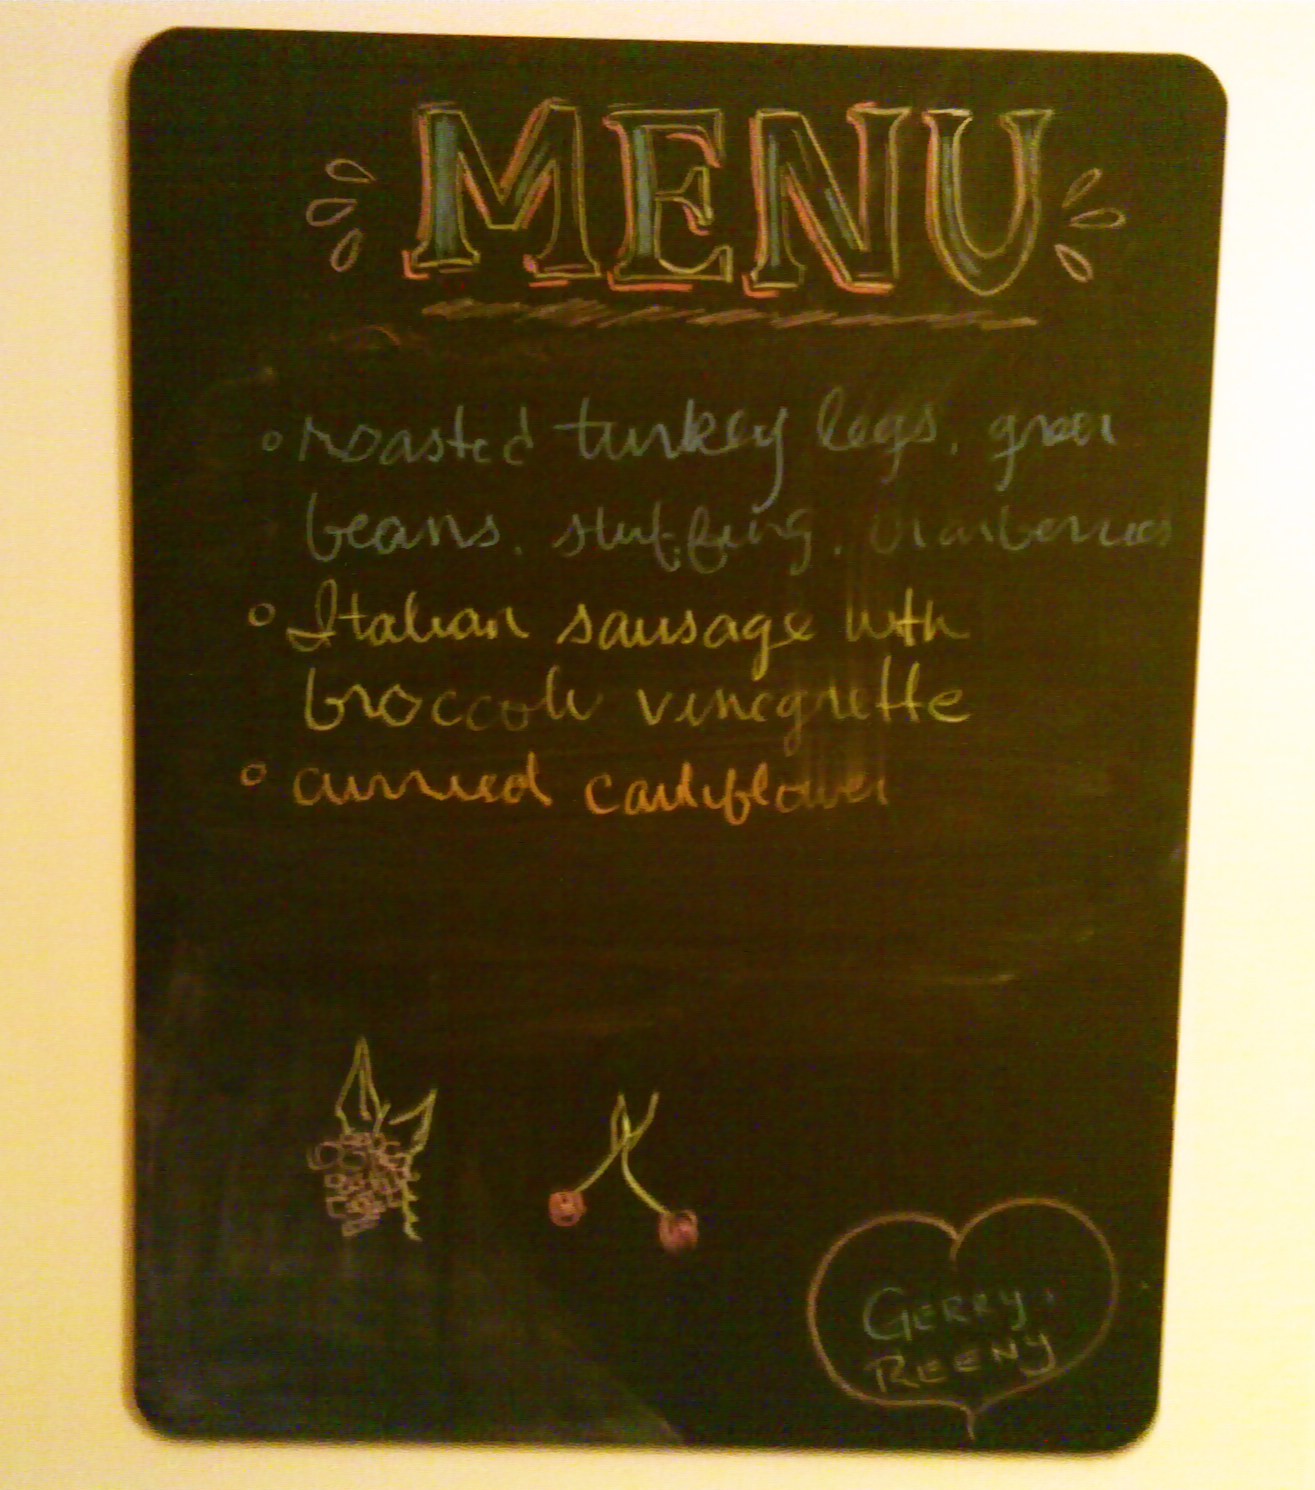 MENU
roasted turkey legs, green
beans, stuffing, cranberries
Italian sausage with
broccoli vinegrette
curried cauliflower
GERRY.
REENY